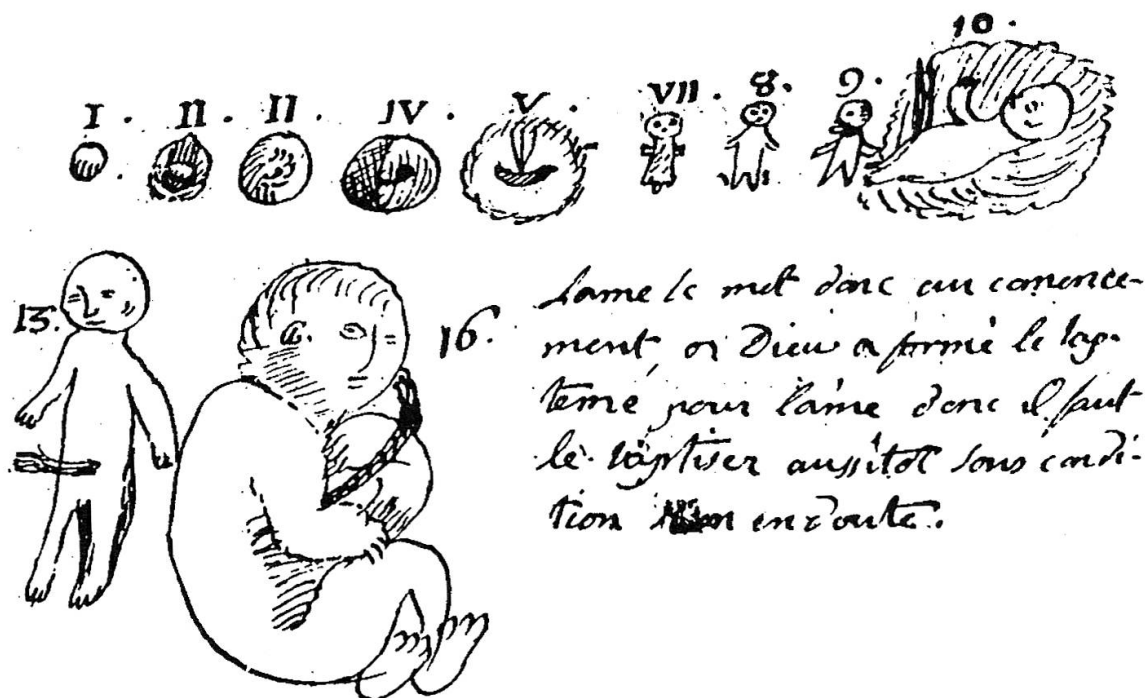 I. II. II IV. V. VII. 8. 9. 10.
15. 16.
Lame se met donc au comence-
ment, or Dieu a formé le bap-
teme pour l'ame donc il faut
le baptiser aussitot sous condi-
tion en doute.